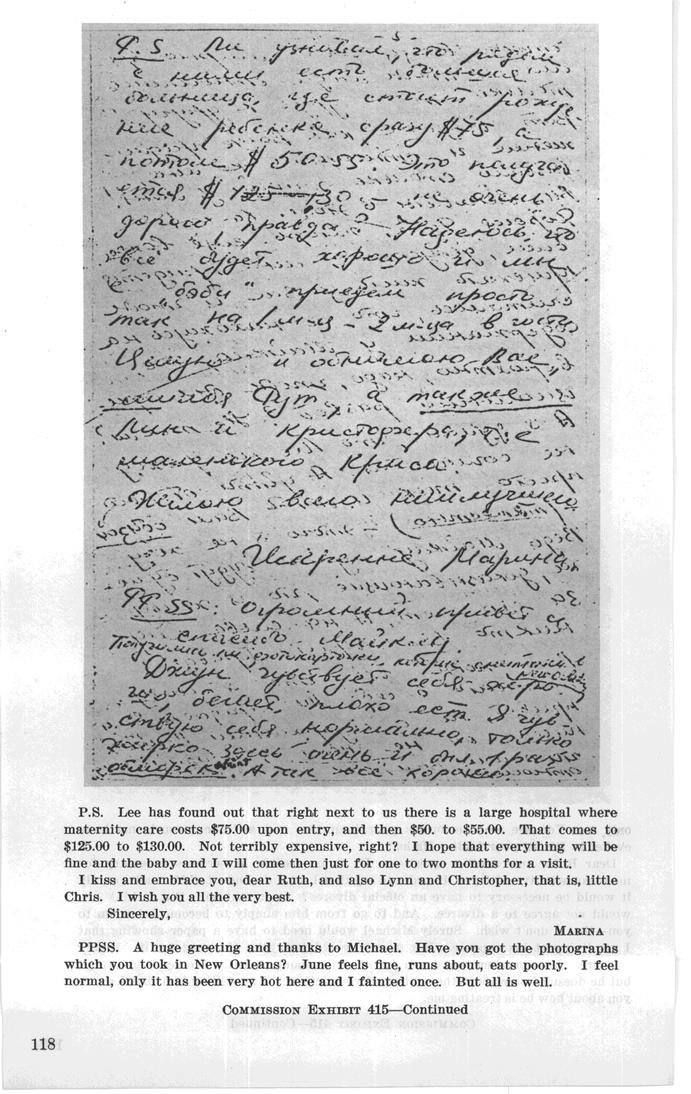 P.S. Ли узнавал, что рядом
с нами есть большая
больница, где стоит рожде-
ние ребенка сразу $75, а
потом $50-55. Это получа-
ется $ 130 не очень
дорого, правда? Надеюсь, что
все будет хорошо и мы
с "бэби" приедем просто
так на 1 м-ц - 2 м-ца в гости
Целую и обнимаю Вас,
Рут, а также
Лин и Кристофера, т.е.
маленького Криса
Желаю всего наилучшего
Искренне Марина
PP.SS: Огромный привет и
спасибо Майклу.
Получили ли фотокарточки, которые
Джун чувствует себя хоро-
шо, бегает, плохо ест. Я чув-
ствую себя нормально, только
жарко здесь очень и был 1 раз
обморок. А так все хорошо.
P.S. Lee has found out that right next to us there is a large hospital where
maternity care costs $75.00 upon entry, and then $50. to $55.00. That comes to
$125.00 to $130.00. Not terribly expensive, right? I hope that everything will be
fine and the baby and I will come then just for one to two months for a visit.
I kiss and embrace you, dear Ruth, and also Lynn and Christopher, that is, little
Chris. I wish you all the very best.
Sincerely,
MARINA
PPSS. A huge greeting and thanks to Michael. Have you got the photographs
which you took in New Orleans? June feels fine, runs about, eats poorly. I feel
normal, only it has been very hot here and I fainted once. But all is well.
COMMISSION EXHIBIT 415—Continued
118